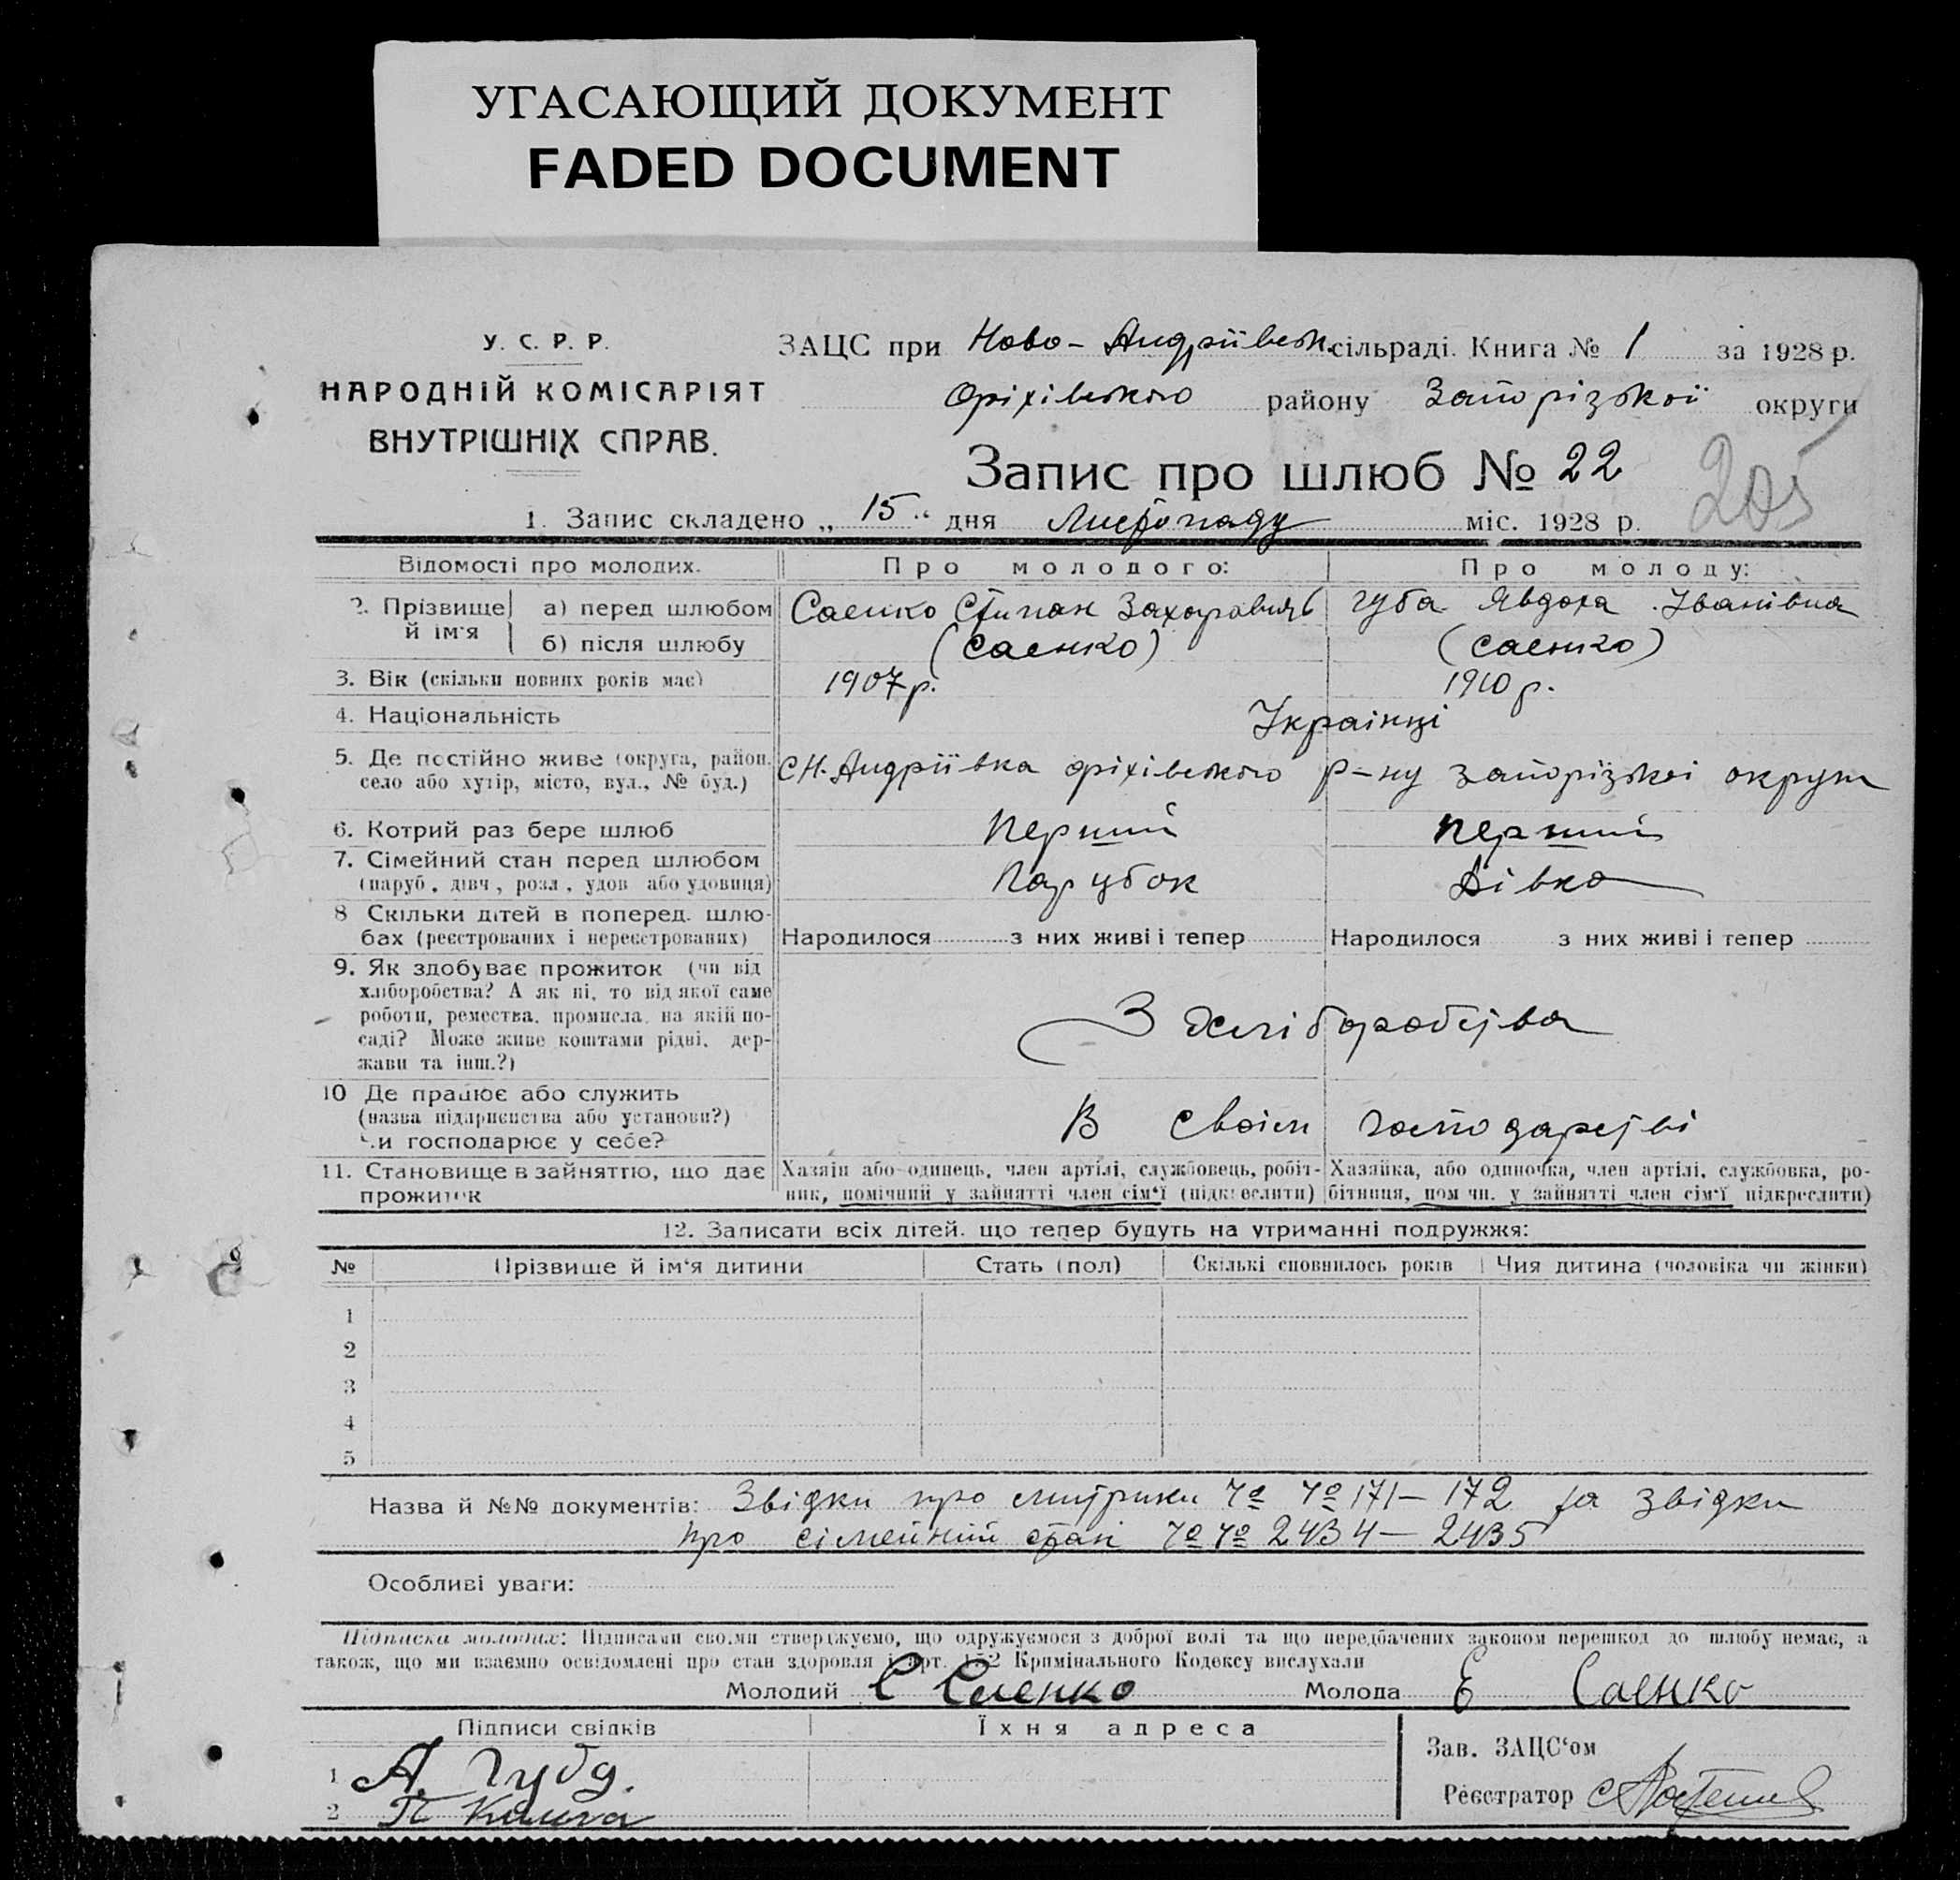 УГАСАЮЩИЙ ДОКУМЕНТ
FADED DOCUMENT
У. С. Р. Р.
НАРОДНІЙ КОМІСАРІЯТ
ВНУТРІШНІХ СПРАВ.
ЗАЦС при Ново-Андріївськ. сільраді. Книга № 1 за 1928 р.
Оріхівського району Запорізької округи
Запис про шлюб № 22
205
1. Запис складено „ 15 “ дня Листопаду міс. 1928 р.
Відомості про молодих. Про молодого: Про молоду:
2. Прізвище й ім'я а) перед шлюбом Саенко Стипан Захарович Губа Явдоха Іванівна
б) після шлюбу (Саенко) (Саенко)
3. Вік (скільки повних років має) 1907 р. 1910 р.
4. Національність Українці
5. Де постійно живе (округа, район, село або хутір, місто, вул., № буд.) С Н-Андріївка Оріхівського р-ну Запорізької округи
6. Котрий раз бере шлюб Перший Перший
7. Сімейний стан перед шлюбом (паруб., дівч., розл., удов. або удовиця) Парубок Дівка
8 Скільки дітей в поперед. шлюбах (реєстрованих і нереєстрованих) Народилося з них живі і тепер Народилося з них живі і тепер
9. Як здобуває прожиток (чи від хліборобства? А як ні, то від якої саме роботи, ремества, промисла, на якій посаді? Може живе коштами рідні, держави та інш.?) З хліборобства
10 Де працює або служить (назва підприємства або установи?) Чи господарює у себе? В своїм господарстві
11. Становище в зайняттю, що дає прожиток Хазяїн або одинець, член артілі, службовець, робітник, помічний у зайнятті член сім'ї (підкреслити) Хазяйка, або одиночка, член артілі, службовка, робітниця, помічн. у зайнятті член сім'ї підкреслити)
12. Записати всіх дітей, що тепер будуть на утриманні подружжя:
№ Прізвище й ім'я дитини Стать (пол) Скількі сповнилось років Чия дитина (чоловіка чи жінки)
1
2
3
4
5
Назва й №№ документів: Звідки про метрики №№ 171-172 та звідки
про сімейний стан №№ 2434-2435
Особливі уваги:
Підписка молодих: Підписами своїми стверджуємо, що одружуємося з доброї волі та що передбачених законом перешкод до шлюбу немає, а
також, що ми взаємно освідомлені про стан здоровля і арт. 152 Кримінального Кодексу вислухали
Молодий С Саенко Молода Е Саенко
Підписи свідків Їхня адреса
Зав. ЗАЦС'ом
1 А. Губа.
Реєстратор
2 П